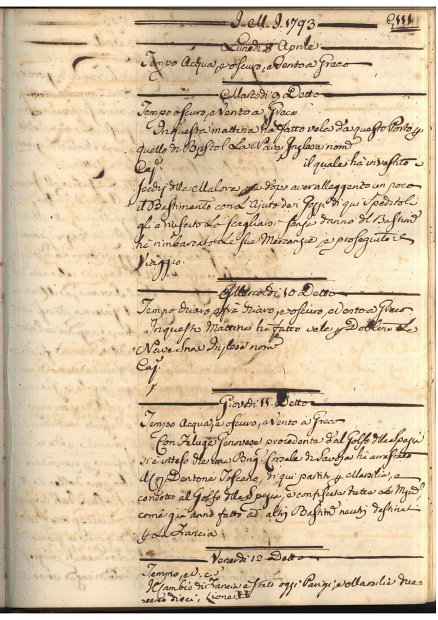 J. M. J. 1793
Lunedi 8 Aprile
Tempo Acqua, e oscuro, e Vento a Greco
Martedi 9 Detto
Tempo oscuro, e Vento a Greco
In questa mattina ha fatto vela da questo Porto p
quello di Bristol La Nave Inglese nom
Cap il quale ha investito
Secchi della Malora, e dopo aver alleggerito un poco
il Bastimento con L'Ajuto dei Gozzi di qui speditoli
gli è riuscito La Scagliare senza danno del Bastim
ha rimbarcato Le sue Mercanzie e proseguito il
Viaggio.
Mercoledi 10 Detto
Tempo chiaro, e oscuro, e Vento a Greco
In questa Mattina ha fatto vela p
Nave Inglese nom
Cap
Giovedi 11 Detto
Tempo Acqua, e oscuro, e Vento a Greco
Con Feluga Genovese procedente dal Golfo della Spezia
si è inteso che una Brig. Corsale di Savoja ha arrestato
il Toscano, di qui partito p Marsilia, e
condotto al Golfo della Spezia, e confiscato tutte le
come già anno fatto ad altri Bastim neutri destinati
p La Francia
Venerdi 12 Detto
Tempo, e
Il Cambio di Francia è stato oggi Parigi, e Marsilia due
dieci, Lione